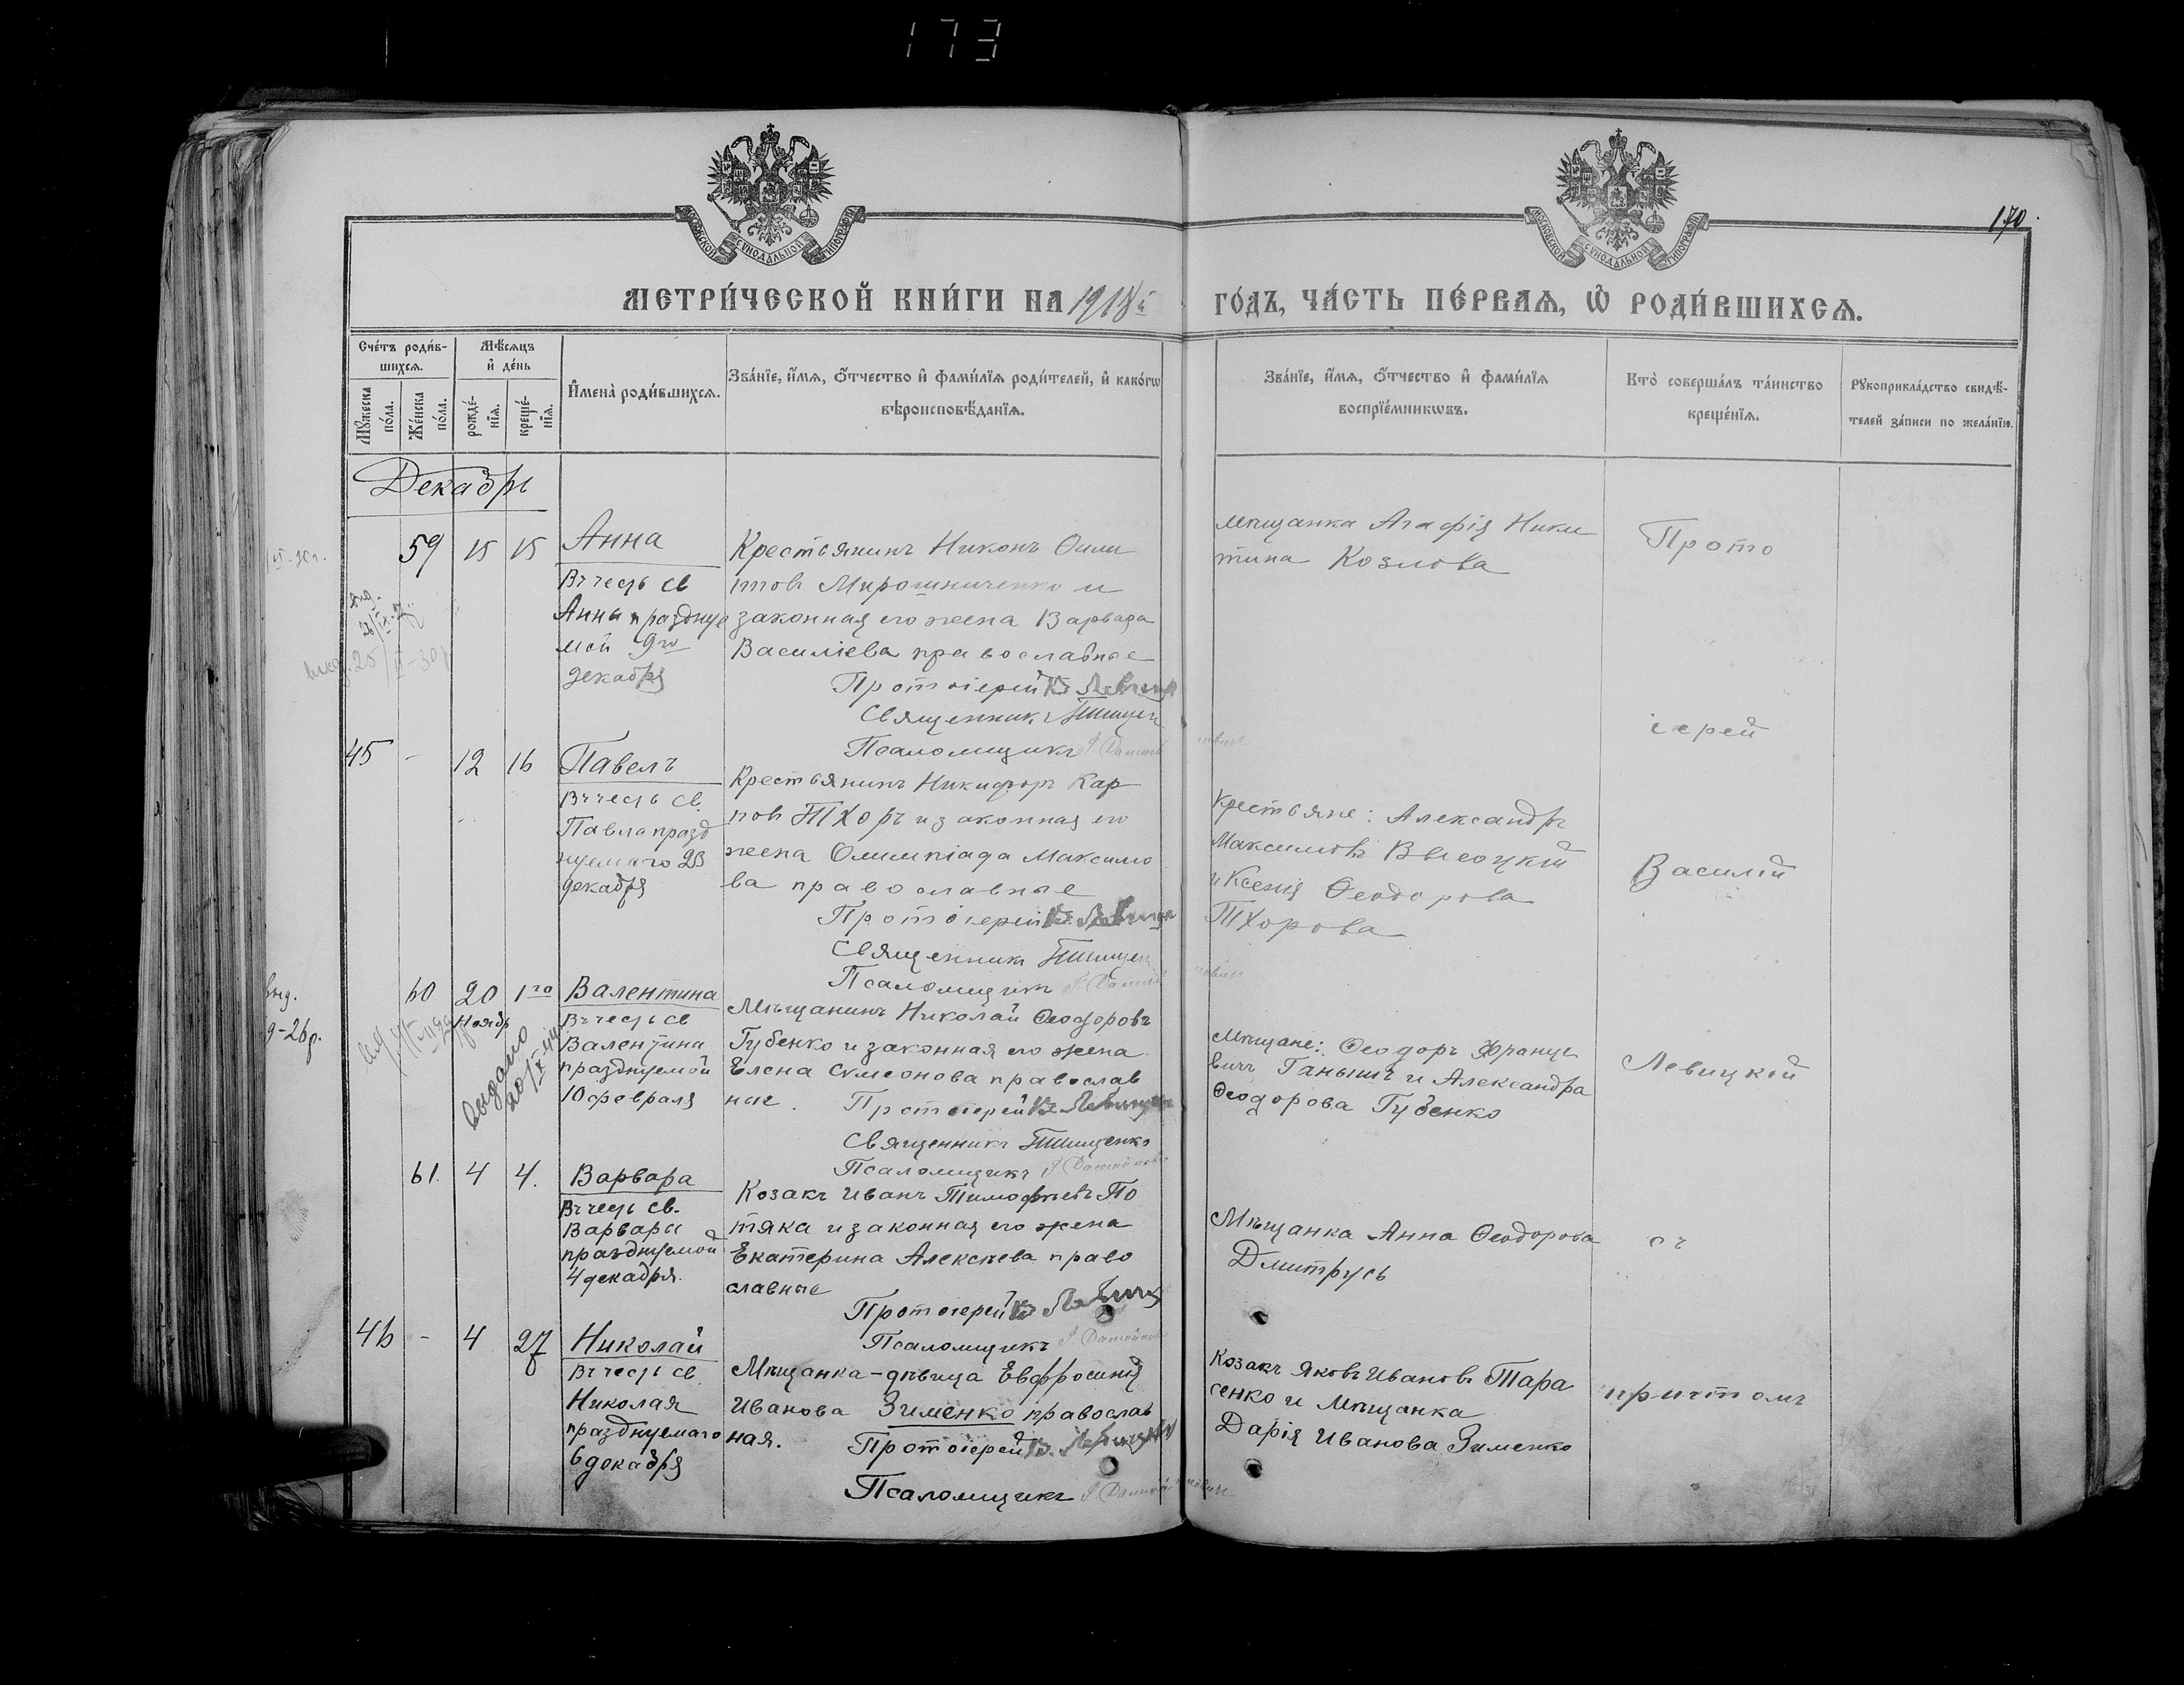 173
170.
МОСКОВСКОЙ СУНОДАЛЬНОЙ ТИПОГРАФІИ
МОСКОВСКОЙ СУНОДАЛЬНОЙ ТИПОГРАФІИ
МЕТРИ́ЧЕСКОЙ КНИ́ГИ НА 1918й ГО́ДЪ, ЧА́СТЬ ПЕ́РВАѦ, Ѡ РОДИ́ВШИХСѦ.
Сче́тъ роди́в-
шихсѧ.
Мѣ́сѧцъ
и де́нь
Мꙋ́жеска по́ла.
Же́нска по́ла.
рожде́-
нїѧ.
креще́-
нїѧ.
Имена̀ роди́вшихсѧ.
Зва́нїе, и́мѧ, ѻ́тчество и фами́лїѧ роди́телей, и како́гѡ
вѣроисповѣ́данїѧ.
Зва́нїе, и́мѧ, ѻ́тчество и фами́лїѧ
воспрїе́мникѡвъ.
Кто̀ соверша́лъ та́инство
креще́нїѧ.
Рꙋкоприкла́дство свидѣ́-
телей за́писи по жела́нїю.
Декабрь
59 15 15 Анна
Въ честь св
Анны празднуе
мой 9го
декабря
Крестьянинъ Никонъ Фили
пповъ Мирошниченко и
законная его жена Варвара
Василіева православные
Протоіерей В Левицк
Священникъ Тищен
Псаломщикъ
Мѣщанка Агафія Ники
тина Козлова
Прото
45 - 12 16 Павелъ
Въ честь св.
Павла празд
нуемаго 23
декабря
Крестьянинъ Никифоръ Кар
повъ Тхоръ и законная его
жена Олимпіада Максимо
ва православные
Протоіерей В. Левицк
Священникъ Тищен
Псаломщикъ
Крестьяне: Александръ
Максимовъ Высоцкій
и Ксенія Ѳеодорова
Тхорова
іерей
Василій
60 20 1го Валентина
Ноябр
Въ честь св
Валентины
празднуемой
10 февраля
выдано
Мѣщанинъ Николай Ѳеодоровъ
Губенко и законная его жена
Елена Сумеонова православ
ные. Протоіерей В. Левицк
Священникъ Тищенко
Псаломщикъ
Мѣщане: Ѳеодоръ Францe
вичъ Ганышъ и Александра
Ѳеодорова Губенко
Левицкій
61. 4 4. Варвара
Въ честь св.
Варвары
празднуемой
4 декабря.
Козакъ Иванъ Тимофѣевъ По
тяка и законная его жена
Екатерина Алексѣева право
славные
Протоіерей В Левицк
Псаломщикъ
Мѣщанка Анна Ѳеодорова
Дмитрусь
съ
46 - 4 27 Николай
Въ честь св.
Николая
празднуемаго
6 декабря
Мѣщанка-дѣвица Евфросинія
Иванова Зименко православ
ная. Протоіерей В. Левицкій
Псаломщикъ
Козакъ Яковъ Ивановъ Тара
сенко и Мѣщанка
Дарія Иванова Зименко
причтомъ